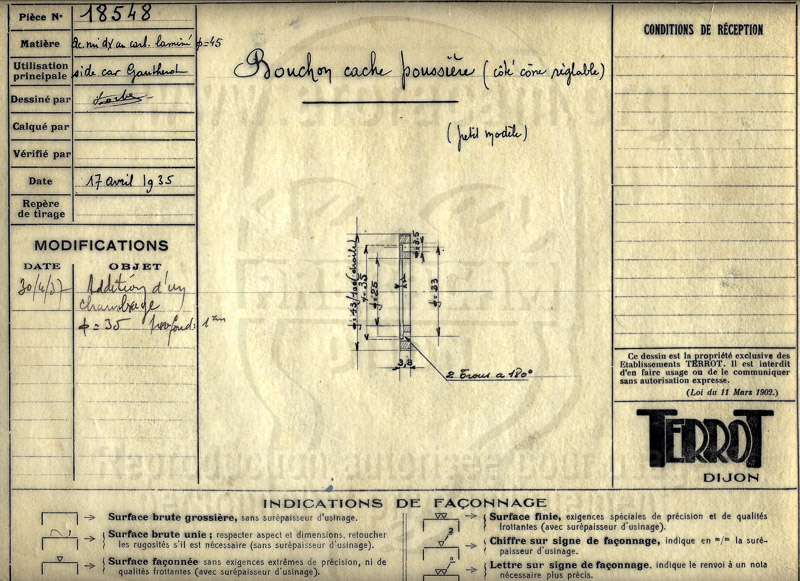 Pièce N° 18548
Matière Ac. mi dx au carb. laminé φ=45
Utilisation principale side car Gautherot
Dessiné par
Calqué par
Vérifié par
Date 17 avril 1935
Repère de tirage
MODIFICATIONS
DATE OBJET
30/4/37 Addition d'un
chambrage
φ=35 profond: 1 mm
Bouchon cache poussière (côté cône réglable)
(petit modèle)
φ=43/100 (droite)
φ=35
φ=25
φ=3.5
φ=33
3,8
2 trous à 180°
CONDITIONS DE RÉCEPTION
Ce dessin est la propriété exclusive des
Etablissements TERROT. Il est interdit
d'en faire usage ou de le communiquer
sans autorisation expresse.
(Loi du 11 Mars 1902.)
TERROT
DIJON
INDICATIONS DE FAÇONNAGE
Surface brute grossière, sans surépaisseur d'usinage.
Surface brute unie ; respecter aspect et dimensions, retoucher
les rugosités s'il est nécessaire (sans surépaisseur d'usinage).
Surface façonnée sans exigences extrêmes de précision, ni de
qualités frottantes (avec surépaisseur d'usinage).
Surface finie, exigences spéciales de précision et de qualités
frottantes (avec surépaisseur d'usinage).
2
Chiffre sur signe de façonnage, indique en m/m la suré-
paisseur d'usinage.
a
Lettre sur signe de façonnage, indique le renvoi à un nota
nécessaire plus précis.